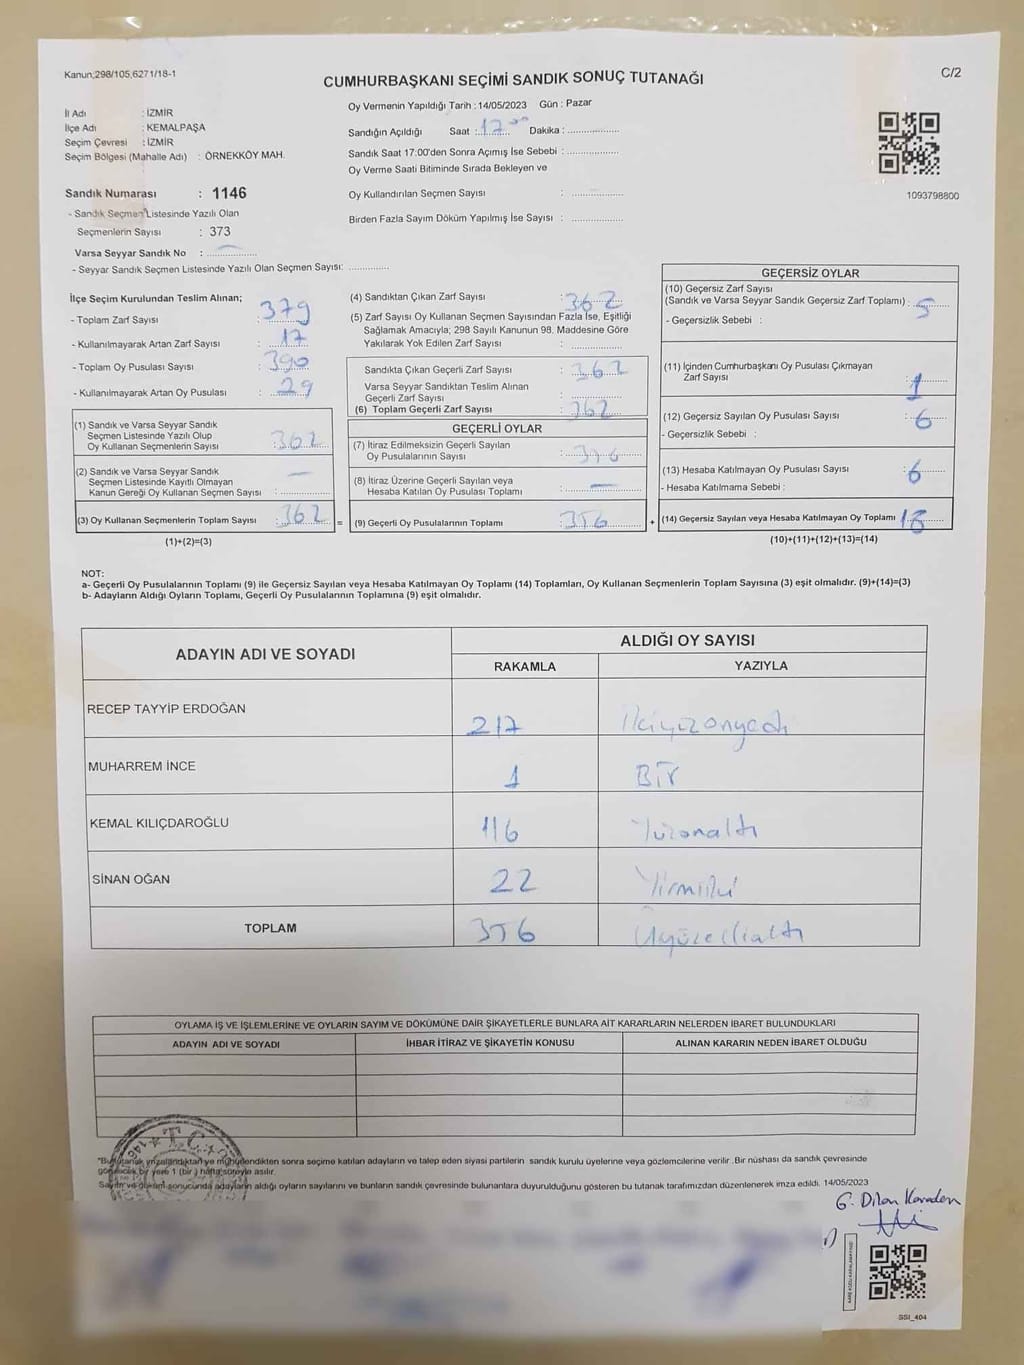 Kanun;298/105,6271/18-1
C/2
CUMHURBAŞKANI SEÇİMİ SANDIK SONUÇ TUTANAĞI
İl Adı : İZMİR
İlçe Adı : KEMALPAŞA
Seçim Çevresi : İZMİR
Seçim Bölgesi (Mahalle Adı) : ÖRNEKKÖY MAH.
Sandık Numarası : 1146
- Sandık Seçmen Listesinde Yazılı Olan
Seçmenlerin Sayısı : 373
Varsa Seyyar Sandık No : ............
- Seyyar Sandık Seçmen Listesinde Yazılı Olan Seçmen Sayısı: ............
Oy Vermenin Yapıldığı Tarih : 14/05/2023 Gün : Pazar
Sandığın Açıldığı Saat : 17.00 Dakika : ................
Sandık Saat 17:00'den Sonra Açımış İse Sebebi : ................
Oy Verme Saati Bitiminde Sırada Bekleyen ve
Oy Kullandırılan Seçmen Sayısı : ................
Birden Fazla Sayım Döküm Yapılmış İse Sayısı : ................
1093798800
İlçe Seçim Kurulundan Teslim Alınan;
- Toplam Zarf Sayısı : 379
- Kullanılmayarak Artan Zarf Sayısı : 17
- Toplam Oy Pusulası Sayısı : 390
- Kullanılmayarak Artan Oy Pusulası : 29
(1) Sandık ve Varsa Seyyar Sandık
Seçmen Listesinde Yazılı Olup
Oy Kullanan Seçmenlerin Sayısı : 362
(2) Sandık ve Varsa Seyyar Sandık
Seçmen Listesinde Kayıtlı Olmayan
Kanun Gereği Oy Kullanan Seçmen Sayısı : —
(3) Oy Kullanan Seçmenlerin Toplam Sayısı : 362 =
(1)+(2)=(3)
(4) Sandıktan Çıkan Zarf Sayısı : 362
(5) Zarf Sayısı Oy Kullanan Seçmen Sayısından Fazla İse, Eşitliği
Sağlamak Amacıyla; 298 Sayılı Kanunun 98. Maddesine Göre
Yakılarak Yok Edilen Zarf Sayısı : ................
Sandıkta Çıkan Geçerli Zarf Sayısı : 362
Varsa Seyyar Sandıktan Teslim Alınan
Geçerli Zarf Sayısı : ................
(6) Toplam Geçerli Zarf Sayısı : 362
GEÇERLİ OYLAR
(7) İtiraz Edilmeksizin Geçerli Sayılan
Oy Pusulalarının Sayısı : 356
(8) İtiraz Üzerine Geçerli Sayılan veya
Hesaba Katılan Oy Pusulası Toplamı : —
(9) Geçerli Oy Pusulalarının Toplamı : 356 +
GEÇERSİZ OYLAR
(10) Geçersiz Zarf Sayısı
(Sandık ve Varsa Seyyar Sandık Geçersiz Zarf Toplamı) : 5
- Geçersizlik Sebebi :
(11) İçinden Cumhurbaşkanı Oy Pusulası Çıkmayan
Zarf Sayısı : 1
(12) Geçersiz Sayılan Oy Pusulası Sayısı : 6
- Geçersizlik Sebebi :
(13) Hesaba Katılmayan Oy Pusulası Sayısı : 6
- Hesaba Katılmama Sebebi :
(14) Geçersiz Sayılan veya Hesaba Katılmayan Oy Toplamı
(10)+(11)+(12)+(13)=(14)
NOT:
a- Geçerli Oy Pusulalarının Toplamı (9) ile Geçersiz Sayılan veya Hesaba Katılmayan Oy Toplamı (14) Toplamları, Oy Kullanan Seçmenlerin Toplam Sayısına (3) eşit olmalıdır. (9)+(14)=(3)
b- Adayların Aldığı Oyların Toplamı, Geçerli Oy Pusulalarının Toplamına (9) eşit olmalıdır.
ADAYIN ADI VE SOYADI ALDIĞI OY SAYISI
RAKAMLA YAZIYLA
RECEP TAYYİP ERDOĞAN 217 ikiyüzonyedi
MUHARREM İNCE 1 BİR
KEMAL KILIÇDAROĞLU 116 Yüzonaltı
SİNAN OĞAN 22 Yirmiiki
TOPLAM 356 Üçyüzellialtı
OYLAMA İŞ VE İŞLEMLERİNE VE OYLARIN SAYIM VE DÖKÜMÜNE DAİR ŞİKAYETLERLE BUNLARA AİT KARARLARIN NELERDEN İBARET BULUNDUKLARI
ADAYIN ADI VE SOYADI İHBAR İTİRAZ VE ŞİKAYETİN KONUSU ALINAN KARARIN NEDEN İBARET OLDUĞU
"Bu tutanak imzalandıktan ve mühürlendikten sonra seçime katılan adayların ve talep eden siyasi partilerin sandık kurulu üyelerine veya gözlemcilerine verilir. Bir nüshası da sandık çevresinde
görülecek bir yere 1 (bir) hafta süreyle asılır.
Sayım ve döküm sonucunda adayların aldığı oyların sayılarını ve bunların sandık çevresinde bulunanlara duyurulduğunu gösteren bu tutanak tarafımızdan düzenlenerek imza edildi. 14/05/2023
T.C.
G. Dilan Karaden
SSI_404